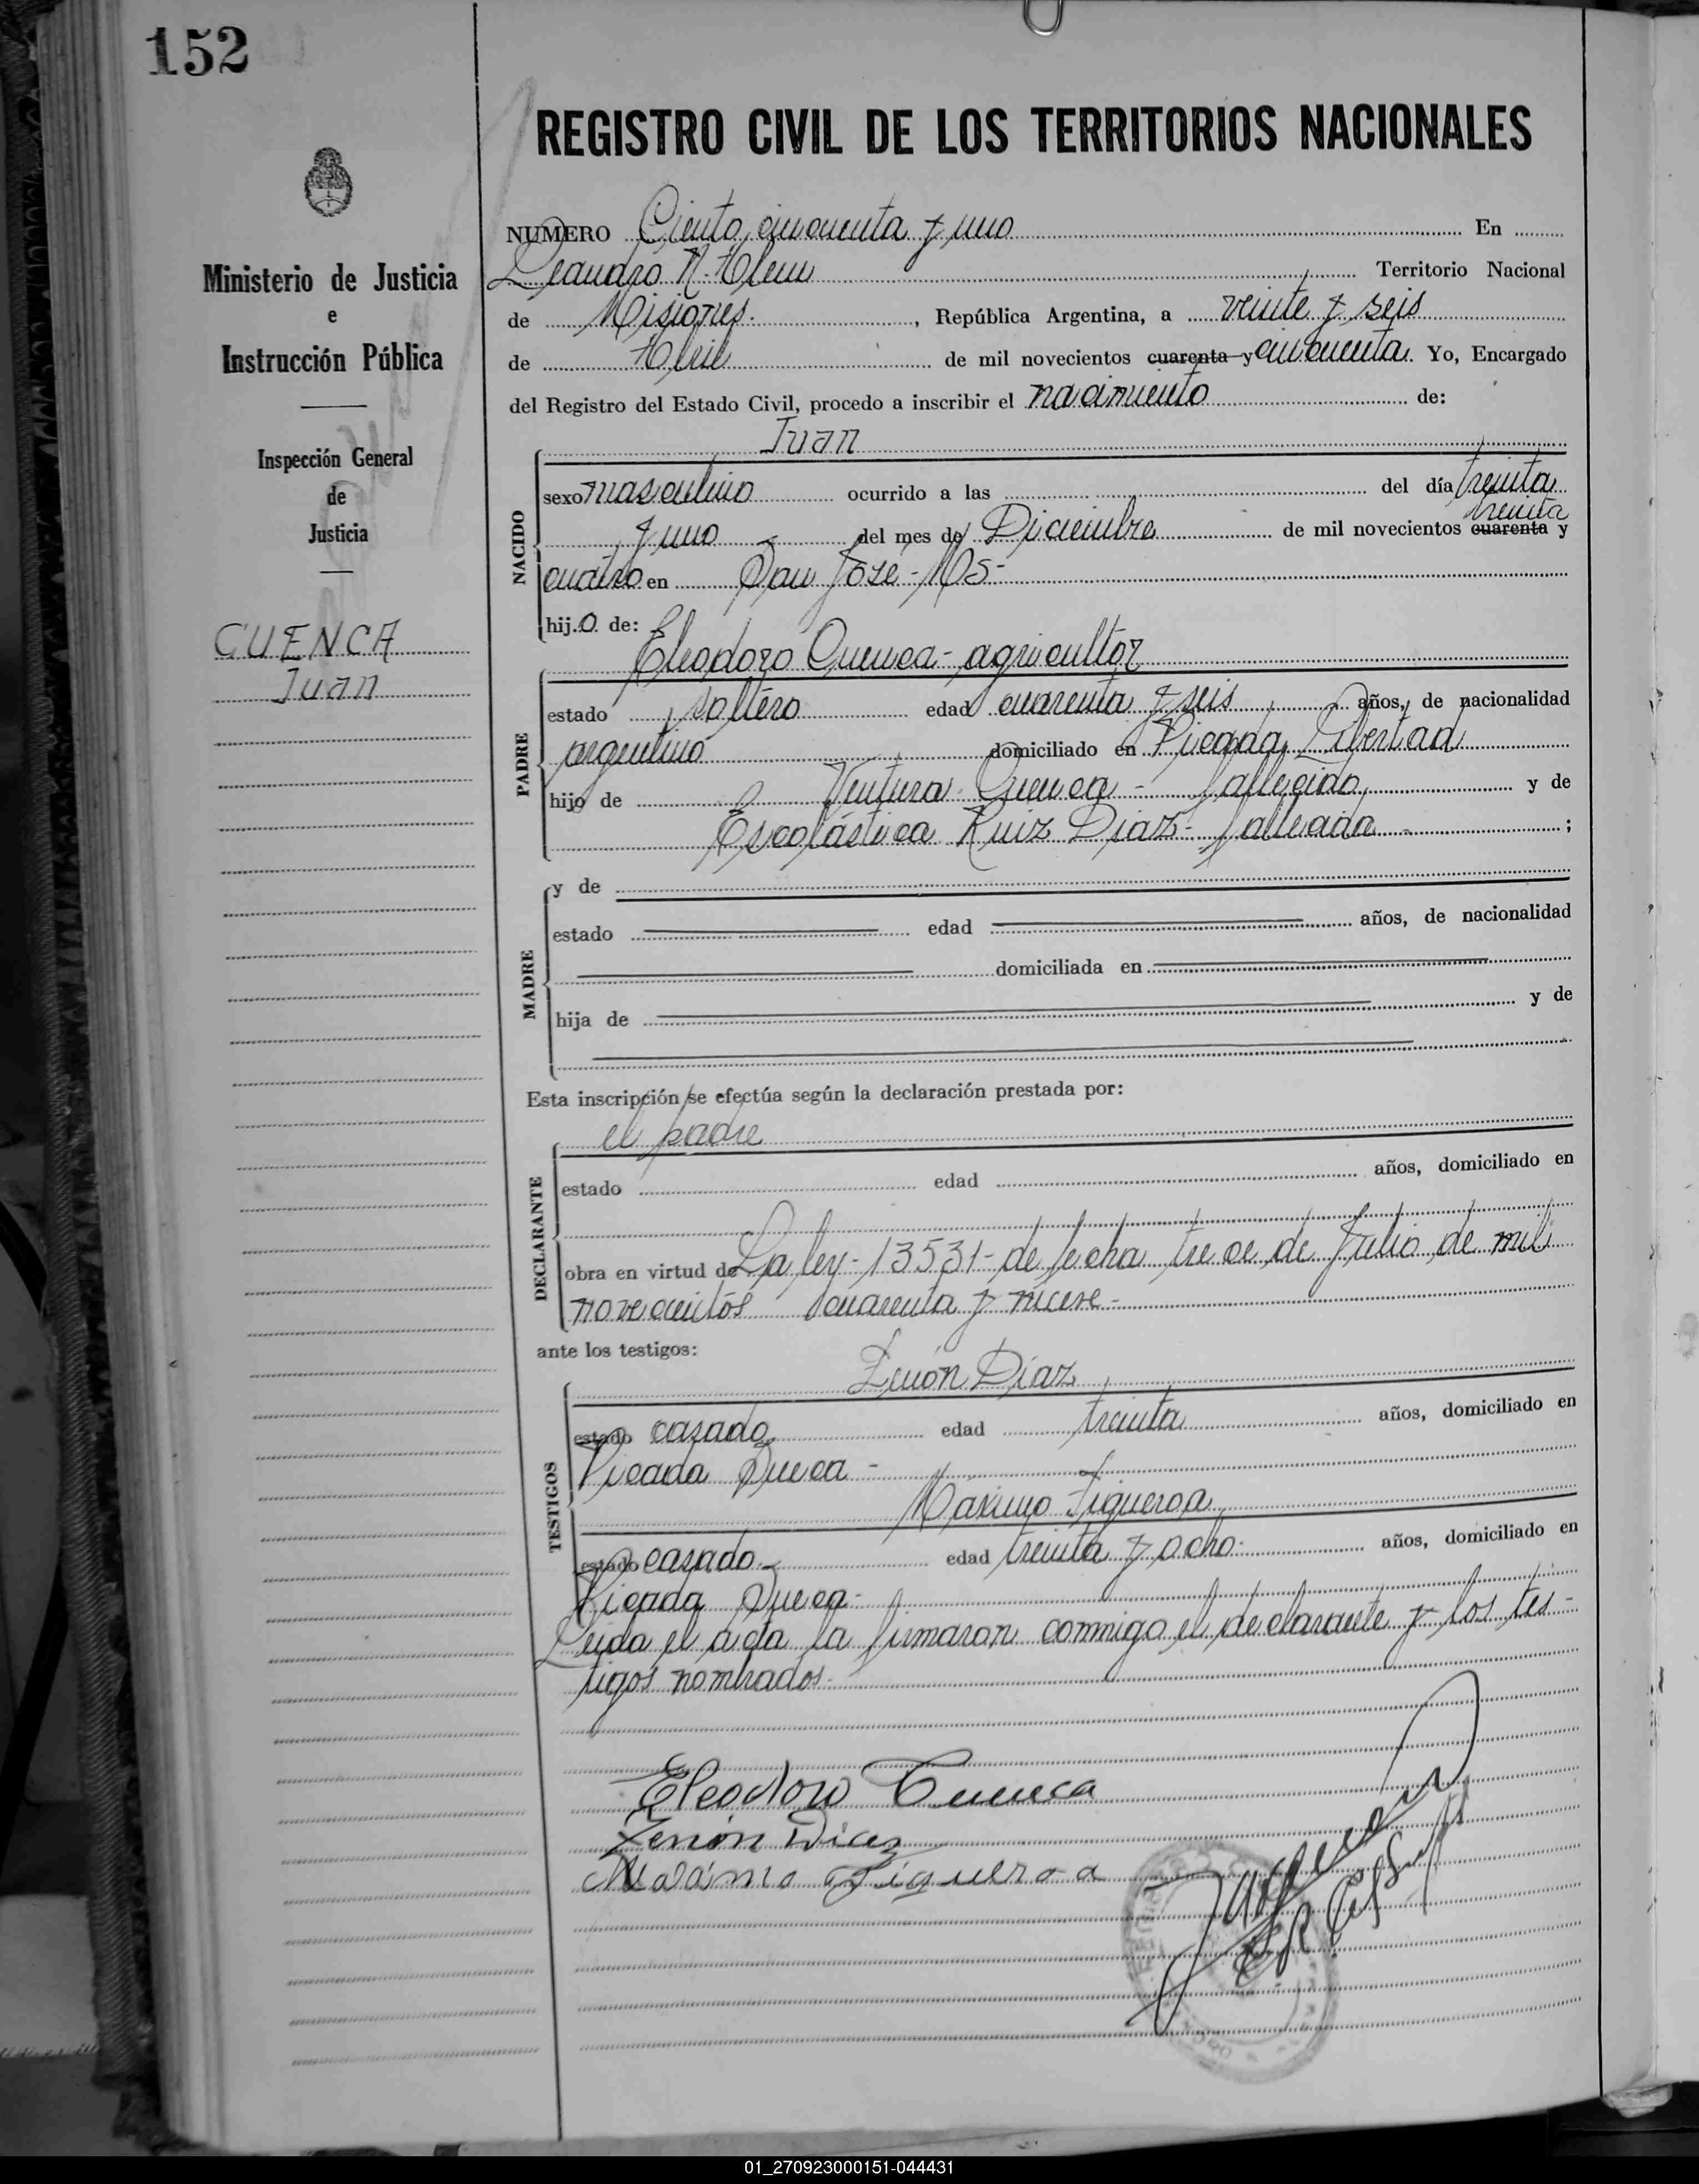 152
REGISTRO CIVIL DE LOS TERRITORIOS NACIONALES
Ministerio de Justicia
e
Instrucción Pública
Inspección General
de
Justicia
CUENCA
Juan
NUMERO Ciento cincuenta y uno En
Leandro N. Alem Territorio Nacional
de Misiones. , República Argentina, a veinte y seis
de Abril de mil novecientos cuarenta y cincuenta. Yo, Encargado
del Registro del Estado Civil, procedo a inscribir el nacimiento de:
Juan
NACIDO
sexo masculino ocurrido a las del día treinta
treinta
y uno del mes de Diciembre de mil novecientos cuarenta y
cuatro en San José - Ms-
hijo de:
Eleodoro Cuenca - agricultor
PADRE
estado soltero edad cuarenta y seis años, de nacionalidad
argentino domiciliado en Picada Libertad
hijo de Ventura Cuenca - fallecido y de
Escolástica Ruiz Diaz - fallecida ;
MADRE
y de
estado edad años, de nacionalidad
domiciliada en
hija de y de
Esta inscripción se efectúa según la declaración prestada por:
el padre
DECLARANTE
estado edad años, domiciliado en
obra en virtud de La ley - 13531 - de fecha trece de Julio de mil
novecientos cuarenta y nueve -
ante los testigos:
Zenón Díaz
TESTIGOS
estado casado edad treinta años, domiciliado en
Picada Sueca -
Máximo Figueroa
estado casado - edad treinta y ocho - años, domiciliado en
Picada Sueca -
Leida el acta la firmaron conmigo el declarante y los tes-
tigos nombrados.
Eleodoro Cuenca
Zenón Diaz
Maximo Figueroa
01_270923000151-044431